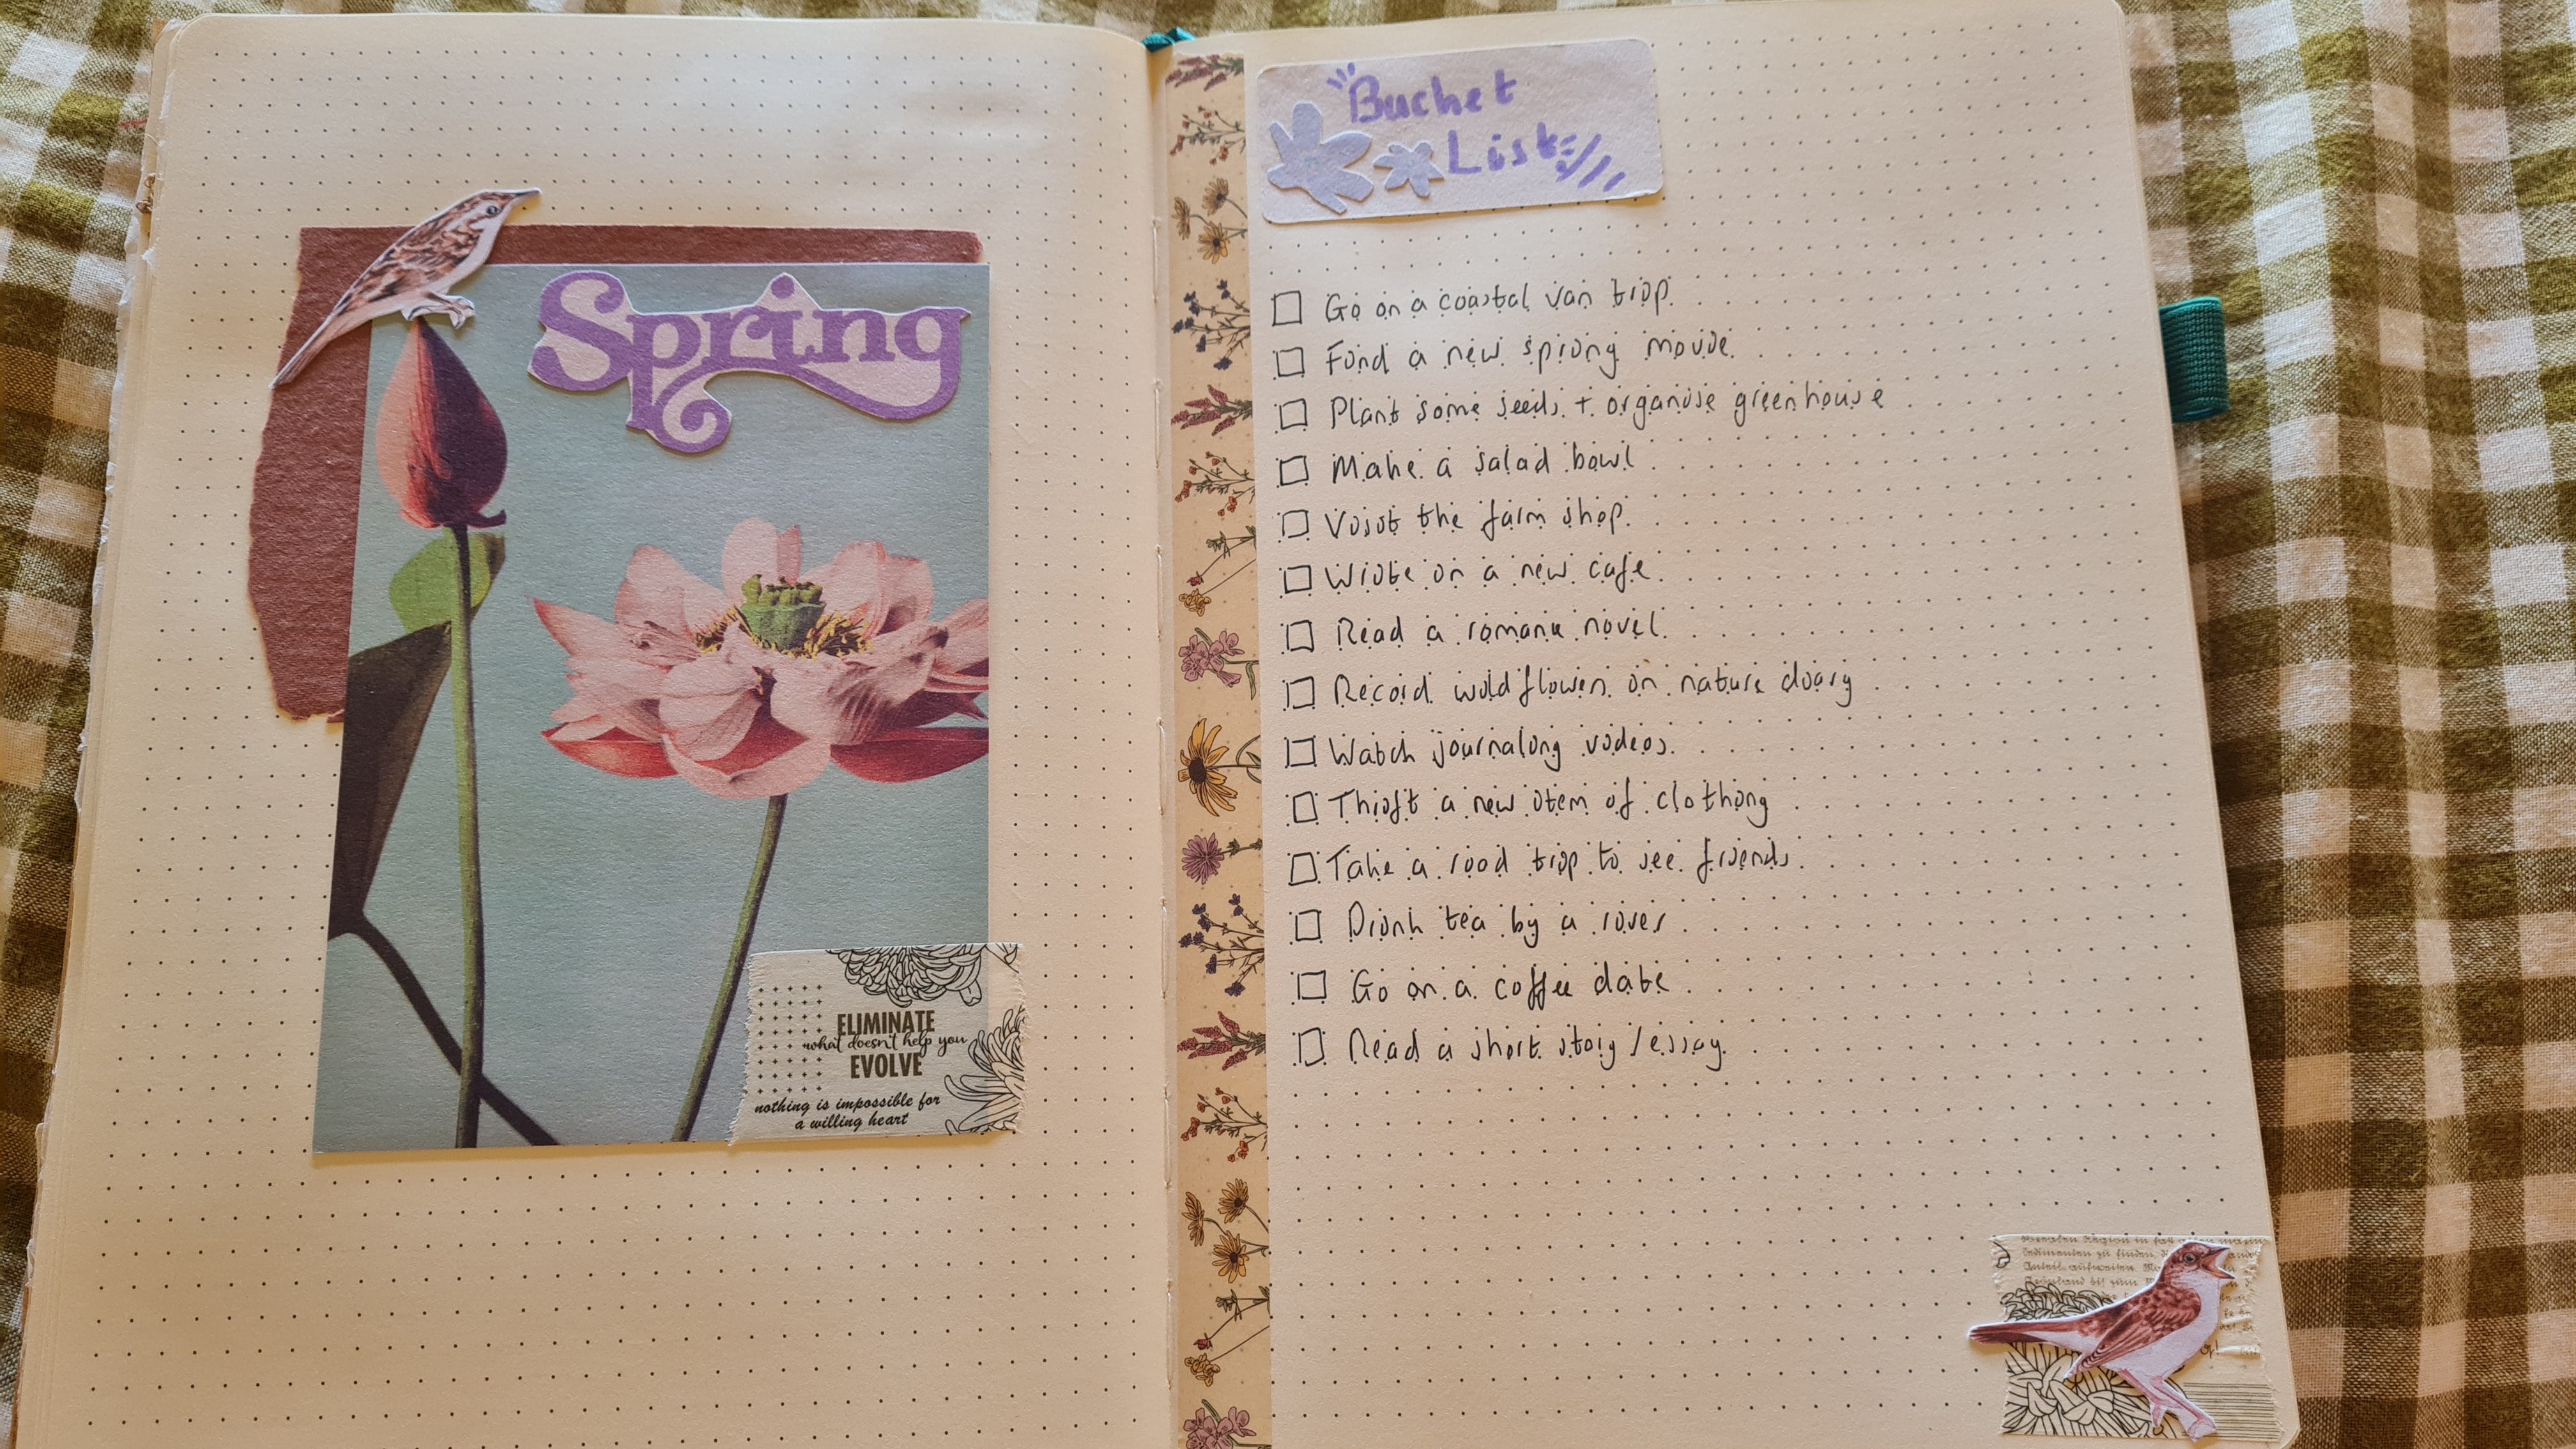 Spring
ELIMINATE
what doesn't help you
EVOLVE
nothing is impossible for
a willing heart
Bucket
List
Go on a coastal van trip.
Find a new spring movie.
Plant some seeds + organise greenhouse
Make a salad bowl
Visit the farm shop.
Write in a new cafe.
Read a romance novel.
Record wildflowers in nature diary
Watch journaling videos.
Thrift a new item of clothing
Take a road trip to see friends.
Drink tea by a river
Go on a coffee date
Read a short story / essay.